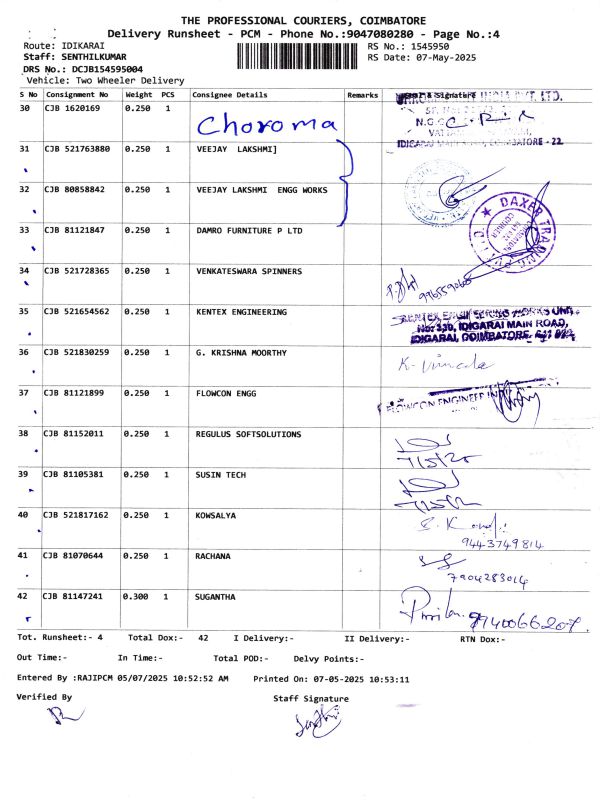 THE PROFESSIONAL COURIERS, COIMBATORE
Delivery Runsheet - PCM - Phone No.:9047080280 - Page No.:4
Route: IDIKARAI
RS No.: 1545950
Staff: SENTHILKUMAR
RS Date: 07-May-2025
DRS No.: DCJB154595004
Vehicle: Two Wheeler Delivery
S No Consignment No Weight PCS Consignee Details Remarks & Signature
30 CJB 1620169 0.250 1
Choroma
IDIKARAI COIMBATORE - 22.
31 CJB 521763880 0.250 1 VEEJAY LAKSHMI]
32 CJB 80858842 0.250 1 VEEJAY LAKSHMI ENGG WORKS
DAXER TRADING
33 CJB 81121847 0.250 1 DAMRO FURNITURE P LTD
34 CJB 521728365 0.250 1 VENKATESWARA SPINNERS
35 CJB 521654562 0.250 1 KENTEX ENGINEERING
IDIGARAI MAIN ROAD,
IDIGARAI, COIMBATORE
36 CJB 521830259 0.250 1 G. KRISHNA MOORTHY
K. Vimala
37 CJB 81121899 0.250 1 FLOWCON ENGG
FLOWCON ENGINEER
38 CJB 81152011 0.250 1 REGULUS SOFTSOLUTIONS
7/5/25
39 CJB 81105381 0.250 1 SUSIN TECH
40 CJB 521817162 0.250 1 KOWSALYA
9443749814
41 CJB 81070644 0.250 1 RACHANA
7904283014
42 CJB 81147241 0.300 1 SUGANTHA
9740066207
Tot. Runsheet:- 4 Total Dox:- 42 I Delivery:- II Delivery:- RTN Dox:-
Out Time:- In Time:- Total POD:- Delvy Points:-
Entered By :RAJIPCM 05/07/2025 10:52:52 AM Printed On: 07-05-2025 10:53:11
Verified By Staff Signature